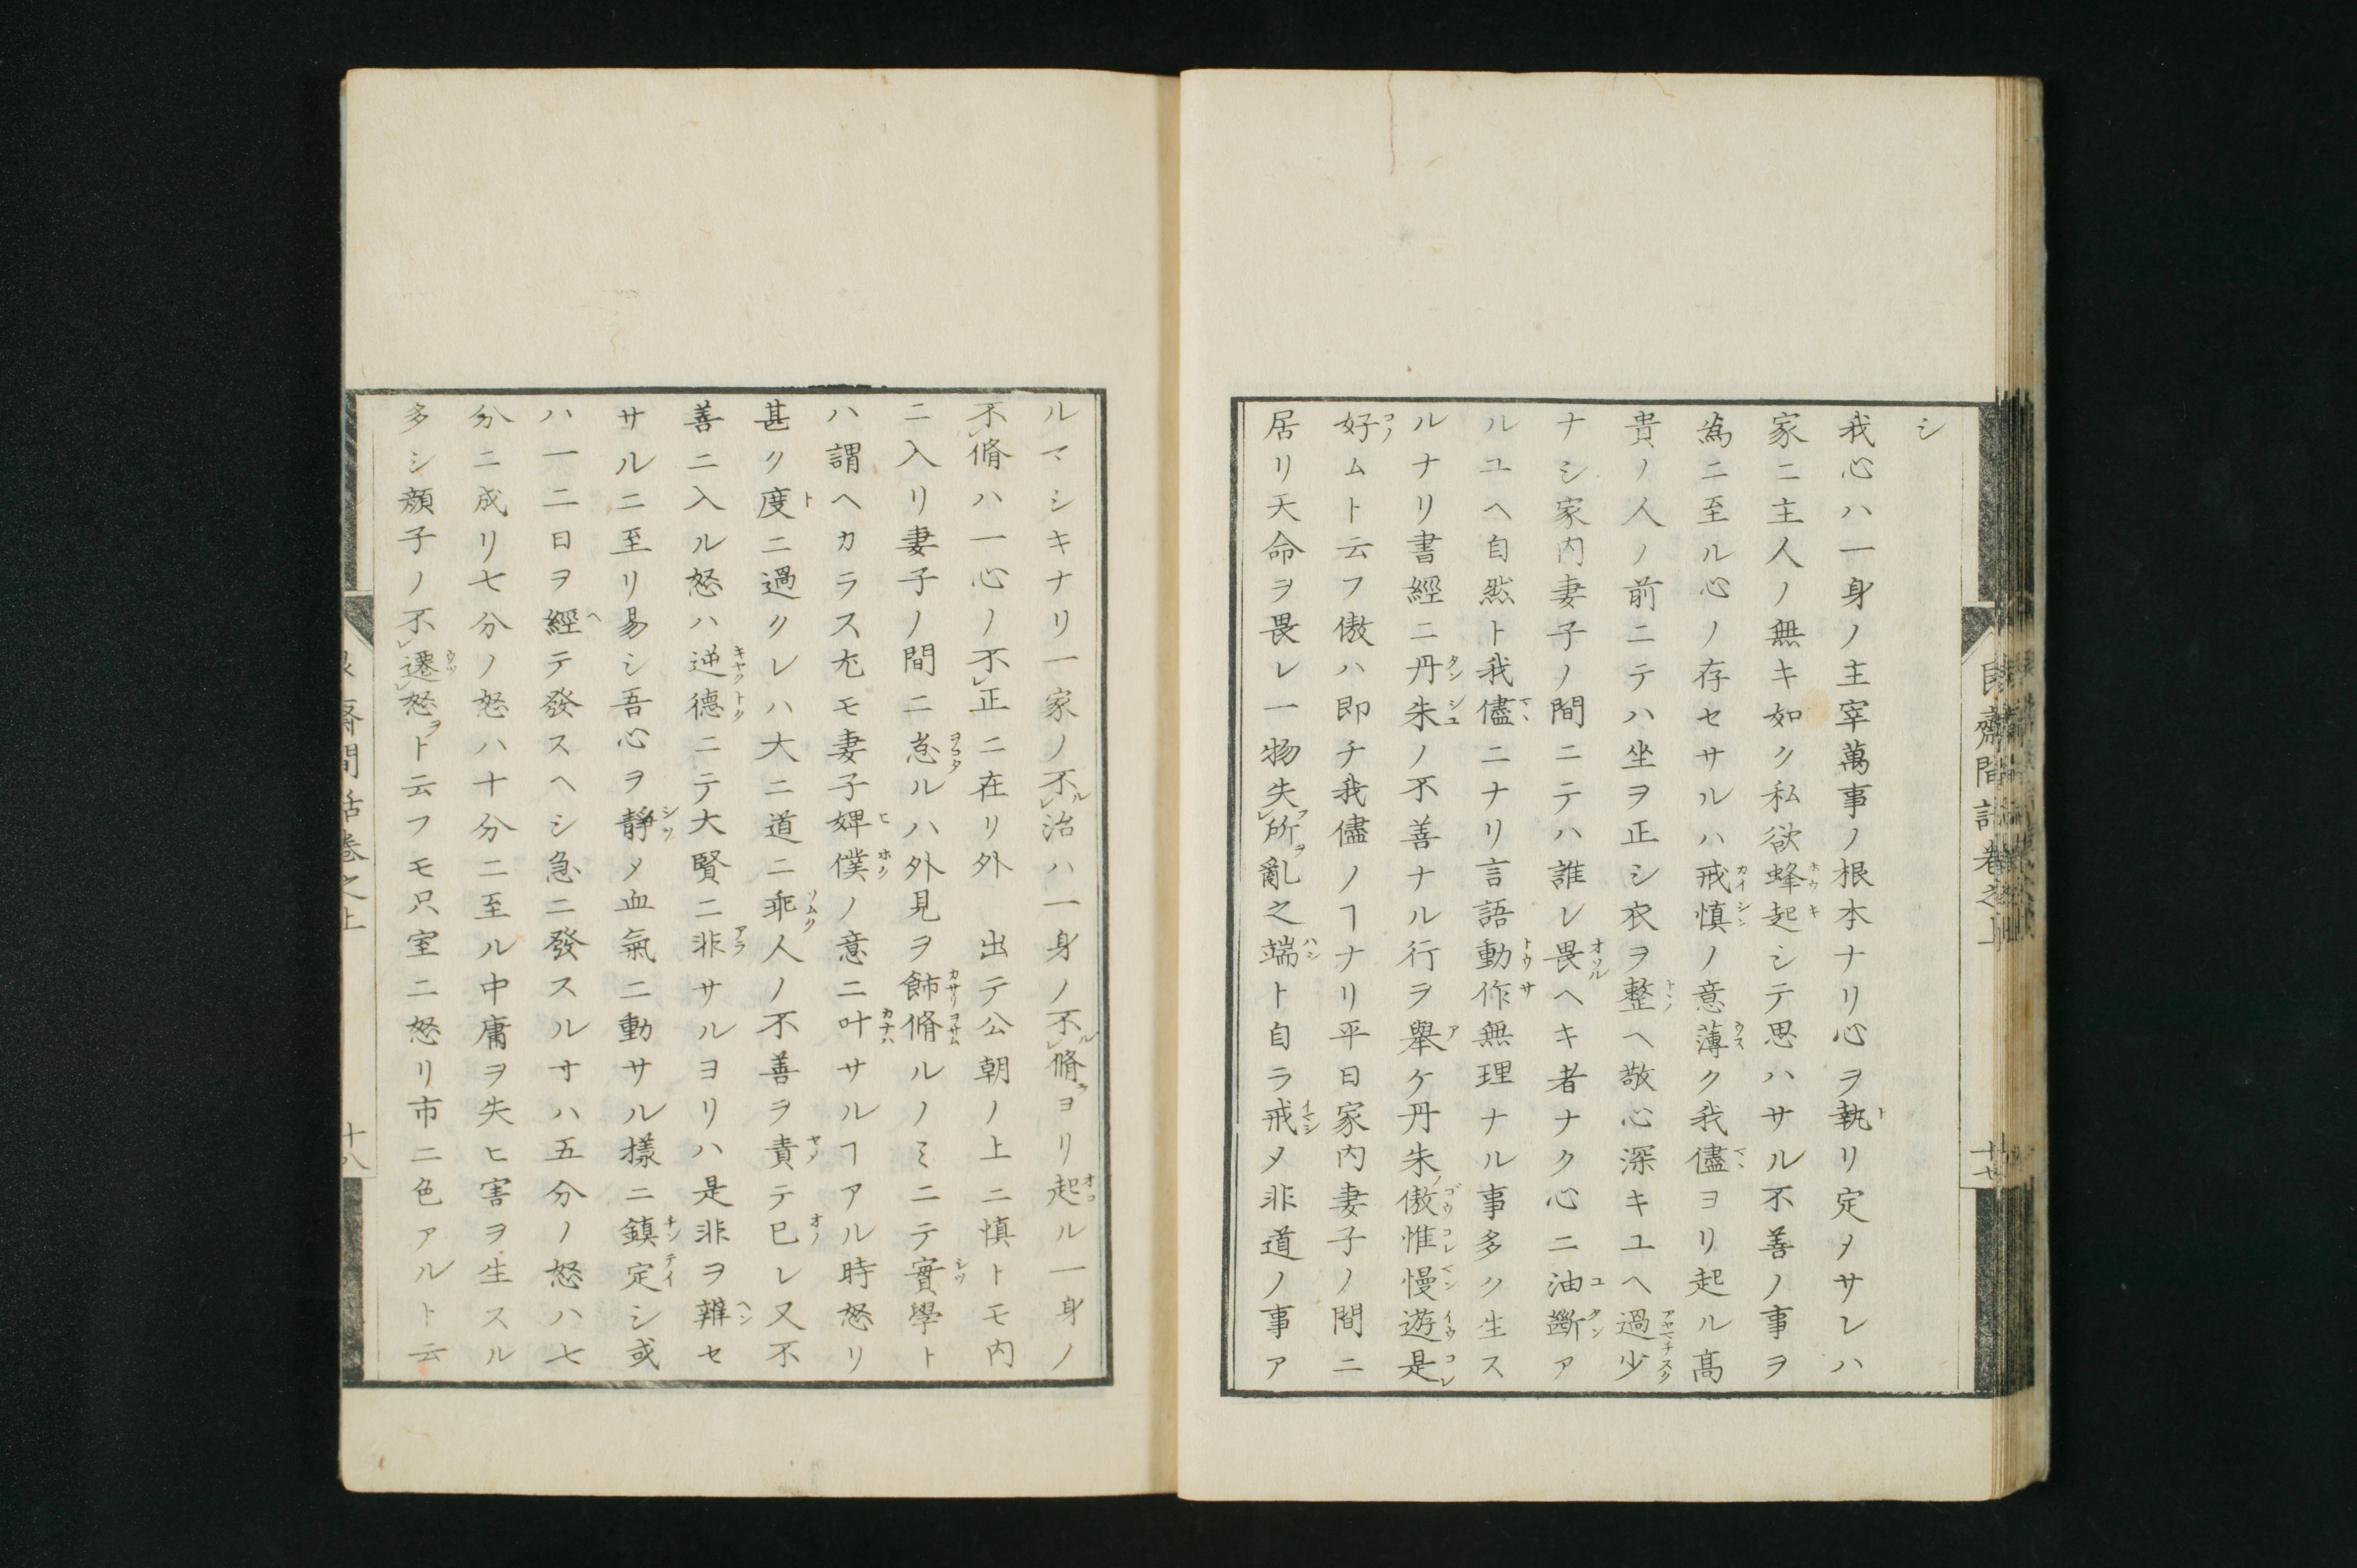 シ
我心ハ一身ノ主宰萬事ノ根本ナリ心ヲ執リ定メサレハ
家ニ主人ノ無キ如ク私欲蜂起シテ思ハサル不善ノ事ヲ
為ニ至ル心ノ存セサルハ戒慎ノ意薄ク我儘ヨリ起ル髙
貴ノ人ノ前ニテハ坐ヲ正シ衣ヲ整ヘ敬心深キユヘ過少
ナシ家内妻子ノ間ニテハ誰レ畏ヘキ者ナク心ニ油斷ア
ルユヘ自然ト我儘ニナリ言語動作無理ナル事多ク生ス
ルナリ書經ニ丹朱ノ不善ナル行ヲ舉ケ丹朱傲惟慢遊是
好ムト云フ傲ハ即チ我儘ノヿナリ平日家内妻子ノ間ニ
居リ天命ヲ畏レ一物失所亂之端ト自ラ戒メ非道ノ事ア
ルマシキナリ一家ノ不治ハ一身ノ不脩ヨリ起ル一身ノ
不脩ハ一心ノ不正ニ在リ外 出テ公朝ノ上ニ慎トモ内
ニ入リ妻子ノ間ニ怠ルハ外見ヲ飾脩ルノミニテ實學ト
ハ謂ヘカラス尤モ妻子婢僕ノ意ニ叶サルヿアル時怒リ
甚ク度ニ過クレハ大ニ道ニ乖人ノ不善ヲ責テ已レ又不
善ニ入ル怒ハ逆德ニテ大賢ニ非サルヨリハ是非ヲ辨セ
サルニ至リ易シ吾心ヲ靜メ血氣ニ動サル樣ニ鎮定シ或
ハ一二日ヲ經テ發スヘシ急ニ發スルヿハ五分ノ怒ハ七
分ニ成リ七分ノ怒ハ十分ニ至ル中庸ヲ失ヒ害ヲ生スル
多シ顔子ノ不遷怒ト云フモ只室ニ怒リ市ニ色アルト云
齋間話卷之上
十八